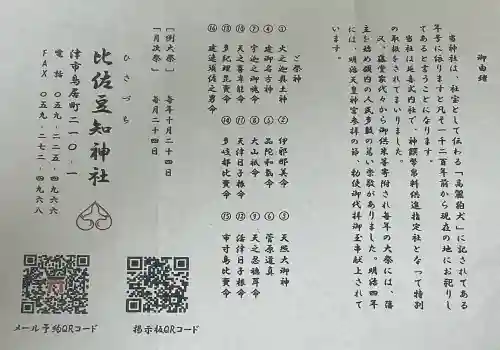 御由緒
当神社は、社宝として伝わる「高麗狛犬」に記されてある
年号に依りますと凡そ一千二百年前から現在の地にお祀りし
てあると言うことになります。
当社は延喜式内社で、神饌幣帛料供進指定社となって特別
の取扱をされてまいりました。
又、藤堂家代々から御供米等寄附され毎年の大祭には、藩
主を始め領内の人民多数の篤い崇敬がありました。明治四年
には、明治天皇神宮参拝の節、勅使御代拝御玉串献上されて
います。
ご祭神
① 火之迦具土神 ② 伊邪那美命 ③ 天照大御神
④ 建御名方神 ⑤ 品陀和氣命 ⑥ 菅原道真
⑦ 宇迦之御魂命 ⑧ 大山祇命 ⑨ 天之忍穂耳命
⑩ 天之菩卑能命 ⑪ 天津日子根命 ⑫ 活津日子根命
⑬ 多紀理毘賣命 ⑭ 多岐都比賣命 ⑮ 市寸島比賣命
⑯ 建速須佐之男命
［例大祭］ 毎年十月二十四日
［月次祭］ 毎月二十四日
ひさづち
比佐豆知神社
津市鳥居町二一〇‐一
電話 〇五九‐二二五‐四九六六
FAX 〇五九‐二七二‐四九六八
メール予約QRコード
掲示板QRコード